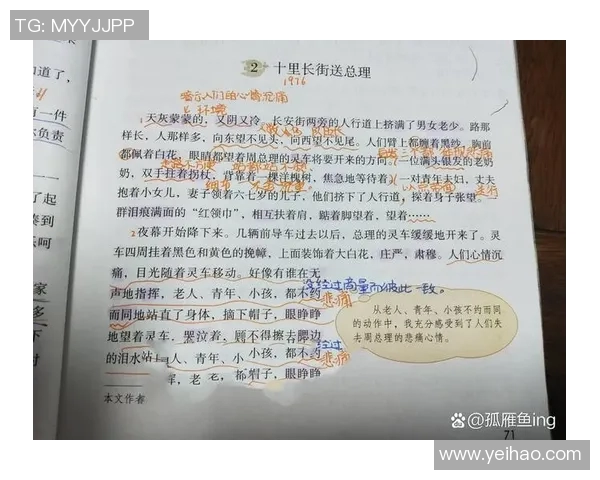 TG: MYYJJPP
道了,
有一件
尔负责
2 十里长街送总理
1976
暗示人们的心情沉痛
环境
1天灰蒙蒙的，又阴又冷。长安街两旁的人行道上挤满了男女老少。路那
样长，人那样多，向东望不见头，向西望不见尾。人们臂上都缠着黑纱，胸前
都佩着白花，眼睛都望着周总理的灵车将要开来的方向。一位满头银发的老奶
奶，双手拄着拐杖，背靠着一棵洋槐树，焦急地等待着。一对青年夫妇，丈夫
抱着小女儿，妻子领着六七岁的儿子，他们挤下了人行道，探着身子张望。
群泪痕满面的“红领巾”，相互扶着肩，踮着脚望着，望着……
2夜幕开始降下来。几辆前导车过去以后，总理的灵车缓缓地开来了。灵
车四周挂着黑色和黄色的挽幛，上面装饰着大白花，庄严，肃穆。人们心情沉
痛，目光随着灵车移动。好像有谁在无
声地指挥，老人、青年、小孩，都不约
没经过商量而彼此一致。
悲痛
而同地站直了身体，摘下帽子，眼睁睁
地望着灵车，哭泣着，顾不得擦去腮边
的泪水
人、青年、小孩，都不约
经过
悲痛
挥，老
帽子，眼睁睁
从老人、青年、小孩不约而同
的动作中，我充分感受到了人们失
去周总理的悲痛心情。
本文作者
71
@孤雁鱼ing
www.yeihao.com